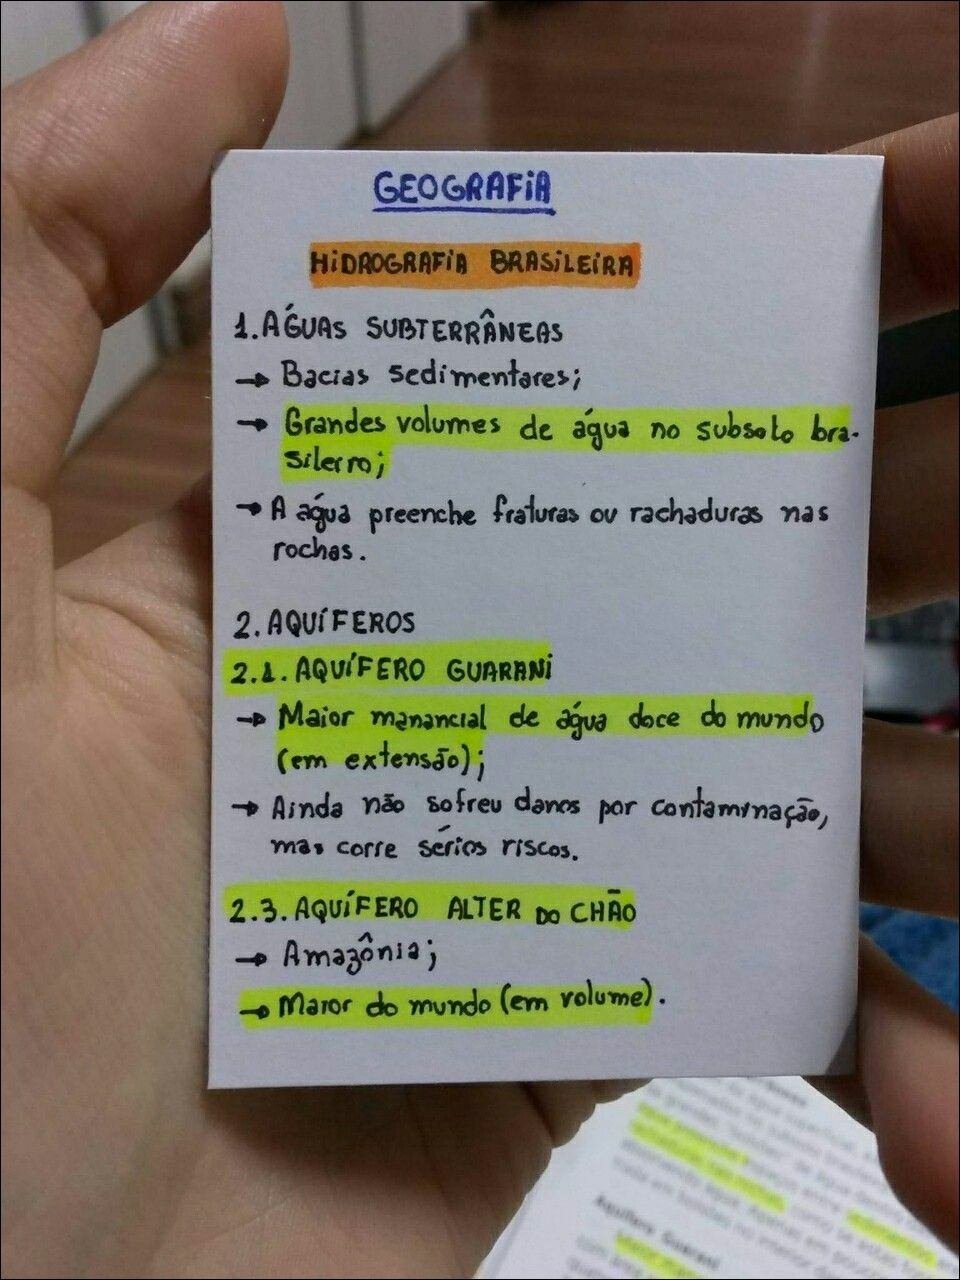 GEOGRAFIA
HIDROGRAFIA BRASILEIRA
1. ÁGUAS SUBTERRÂNEAS
→ Bacias sedimentares;
→ Grandes volumes de água no subsolo bra-
sileiro;
→ A água preenche fraturas ou rachaduras nas
rochas.
2. AQUÍFEROS
2.1. AQUÍFERO GUARANI
→ Maior manancial de água doce do mundo
(em extensão);
→ Ainda não sofreu danos por contaminação,
mas corre sérios riscos.
2.3. AQUÍFERO ALTER DO CHÃO
→ Amazônia;
→ Maior do mundo (em volume).
Aquífero Guarani